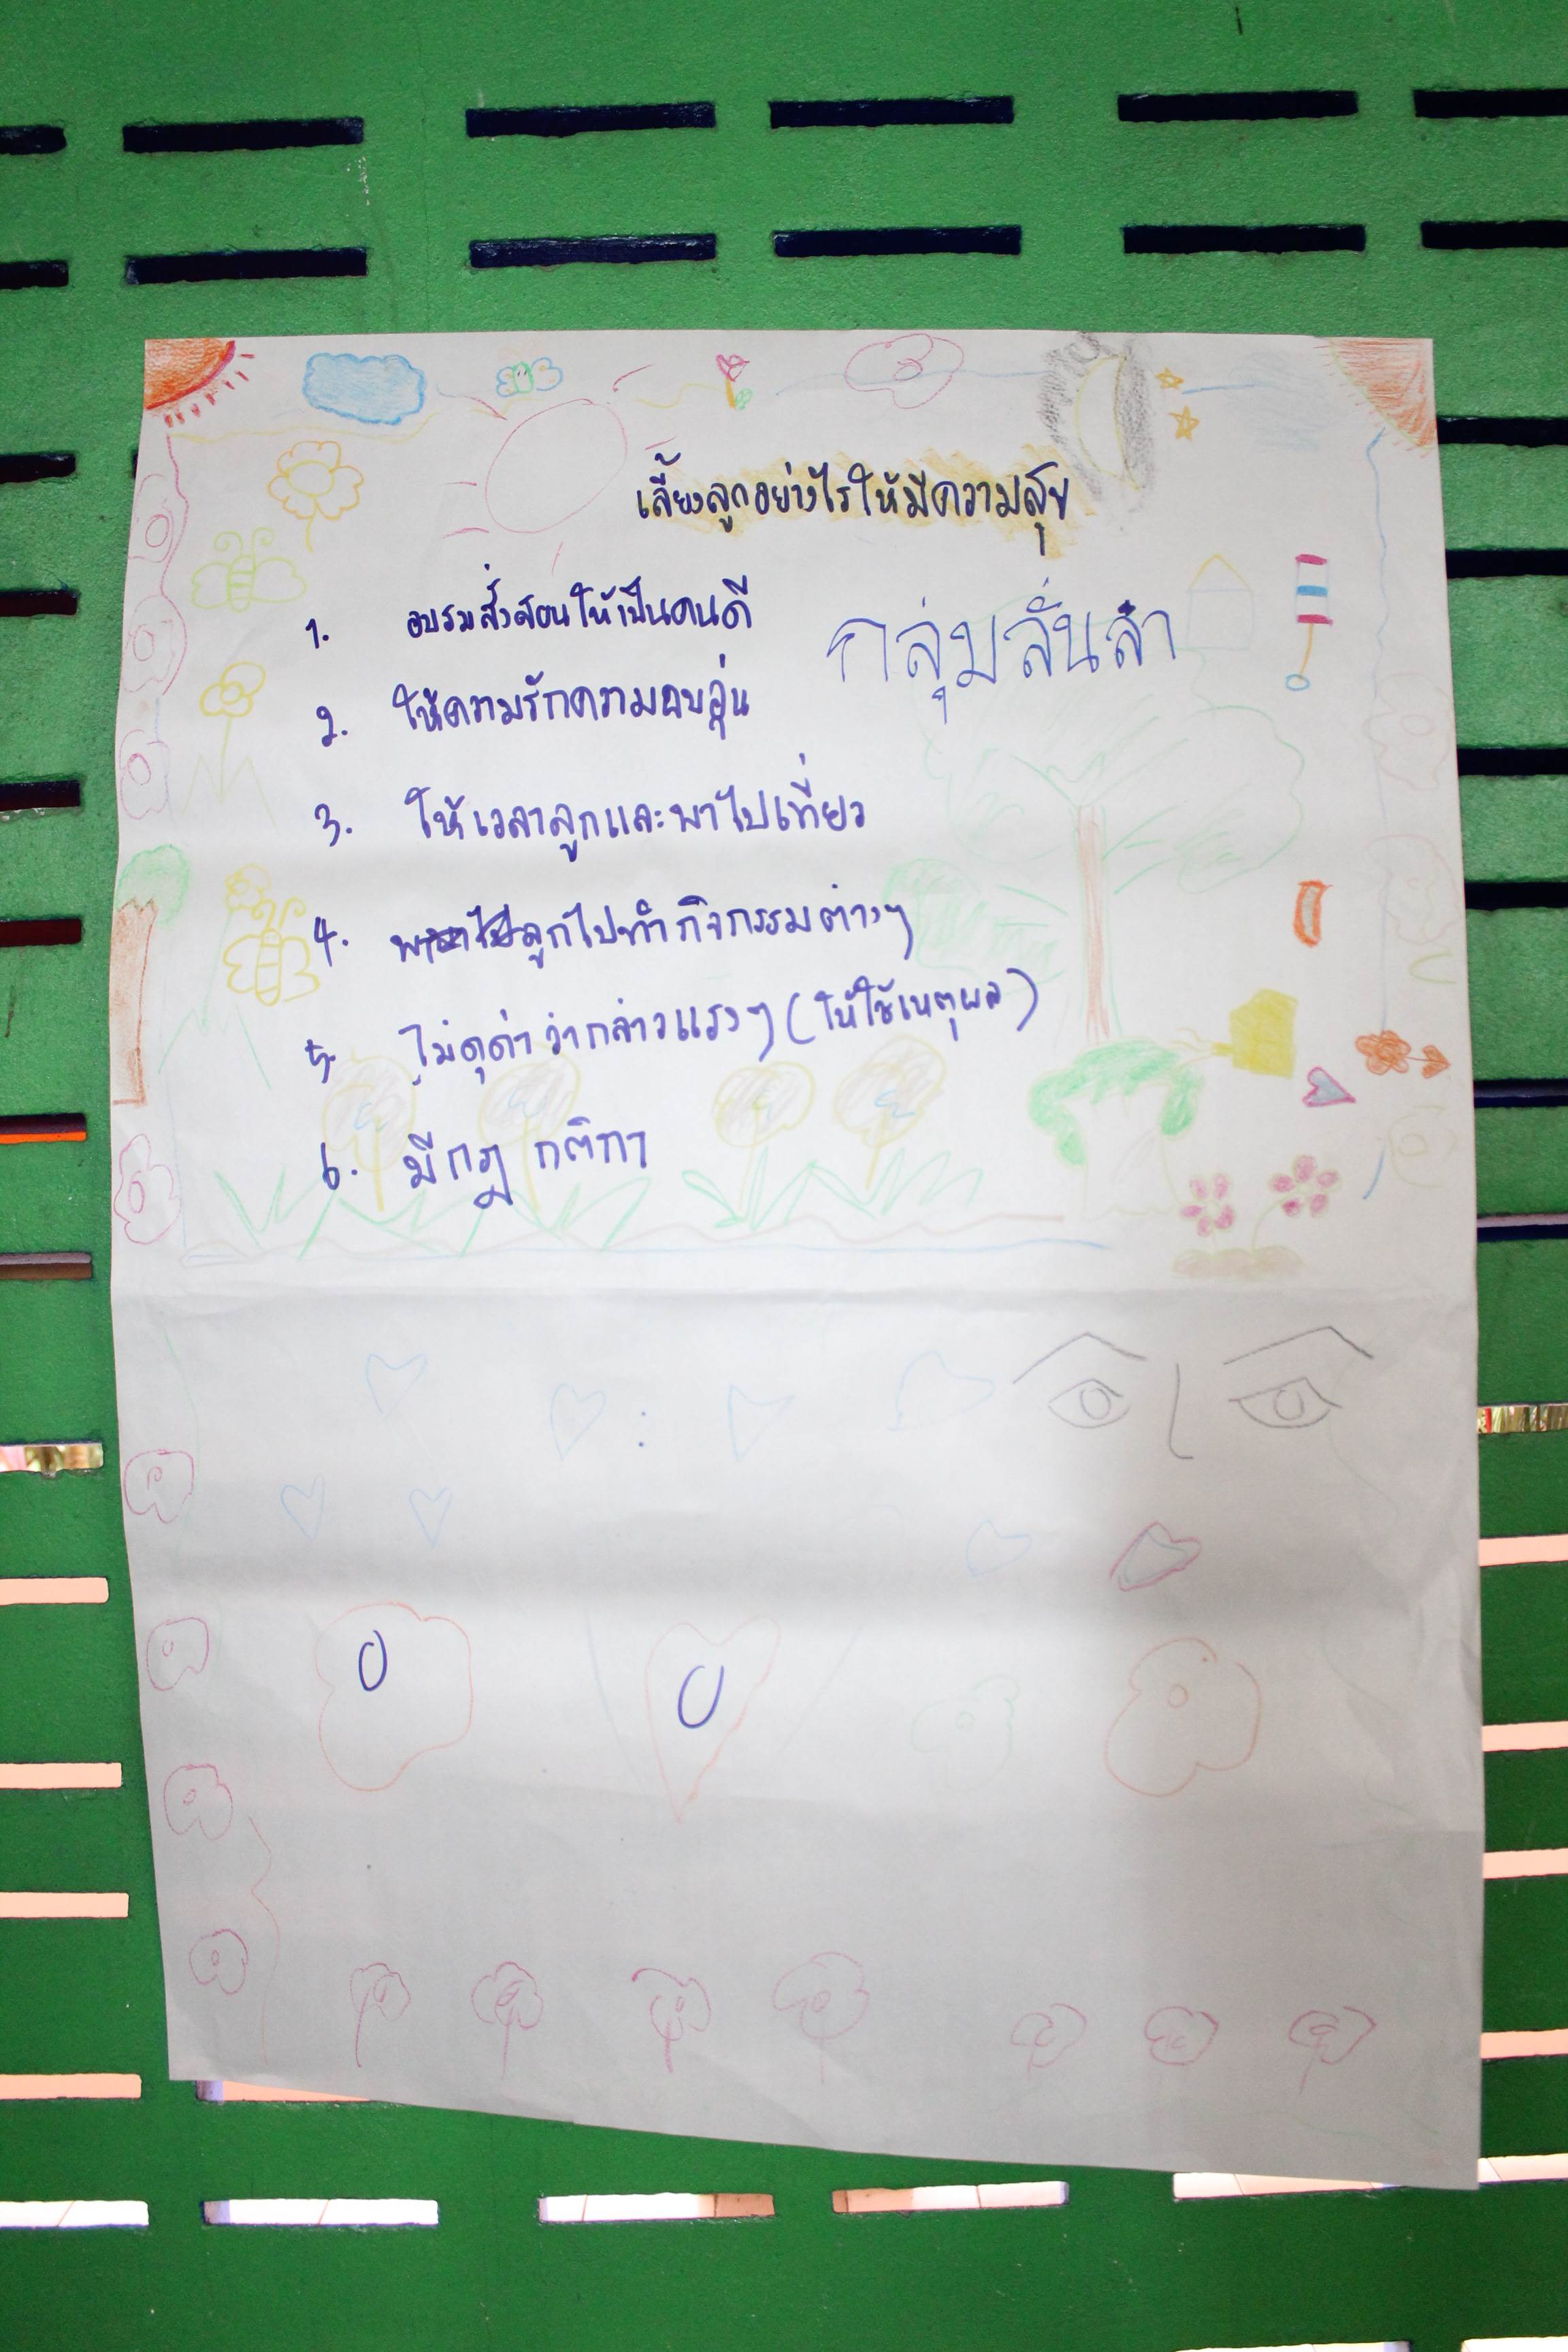 เลี้ยงลูกอย่างไรให้มีความสุข
กลุ่มลั่นล้า
1. อบรมสั่งสอนให้เป็นคนดี
2. ให้ความรักความอบอุ่น
3. ให้เวลาลูกและพาไปเที่ยว
4. พาลูกไปทำกิจกรรมต่างๆ
5. ไม่ดุด่าว่ากล่าวแรงๆ (ให้ใช้เหตุผล)
6. มีกฎ กติกา